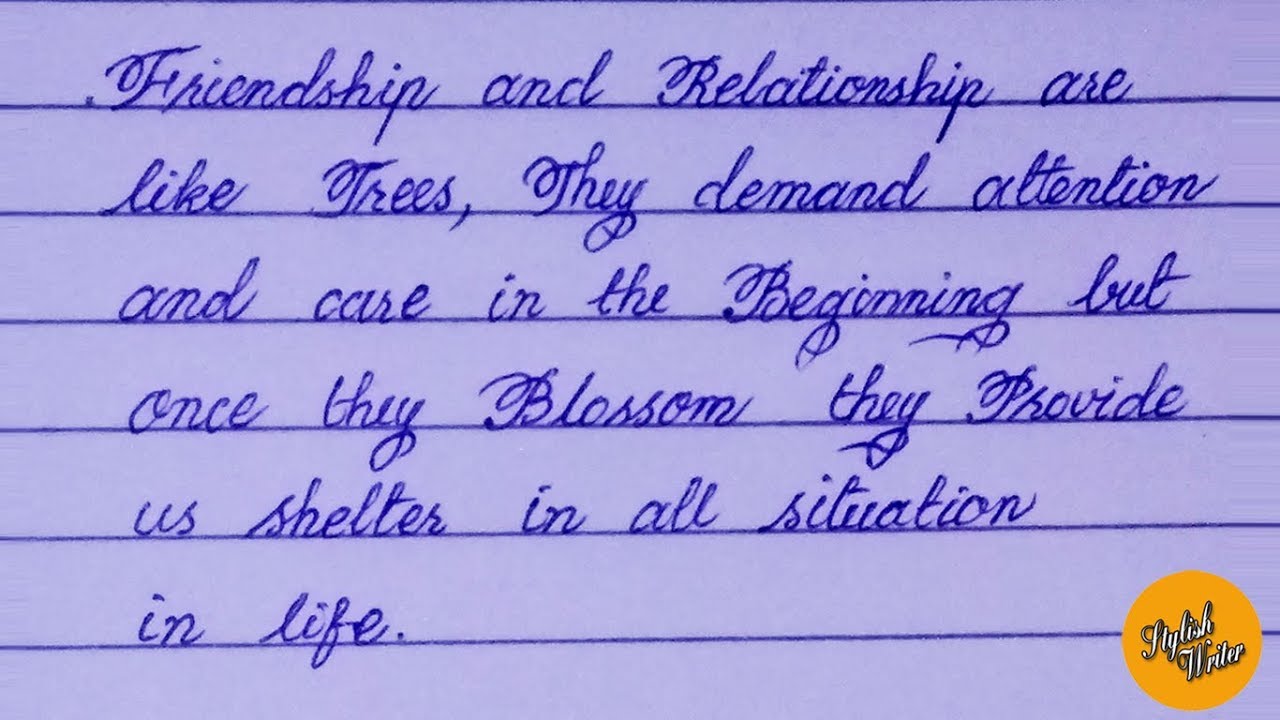 Friendship and Relationship are
like Trees, They demand attention
and care in the Beginning but
once they Blossom they Provide
us shelter in all situation
in life.
Stylish
Writer